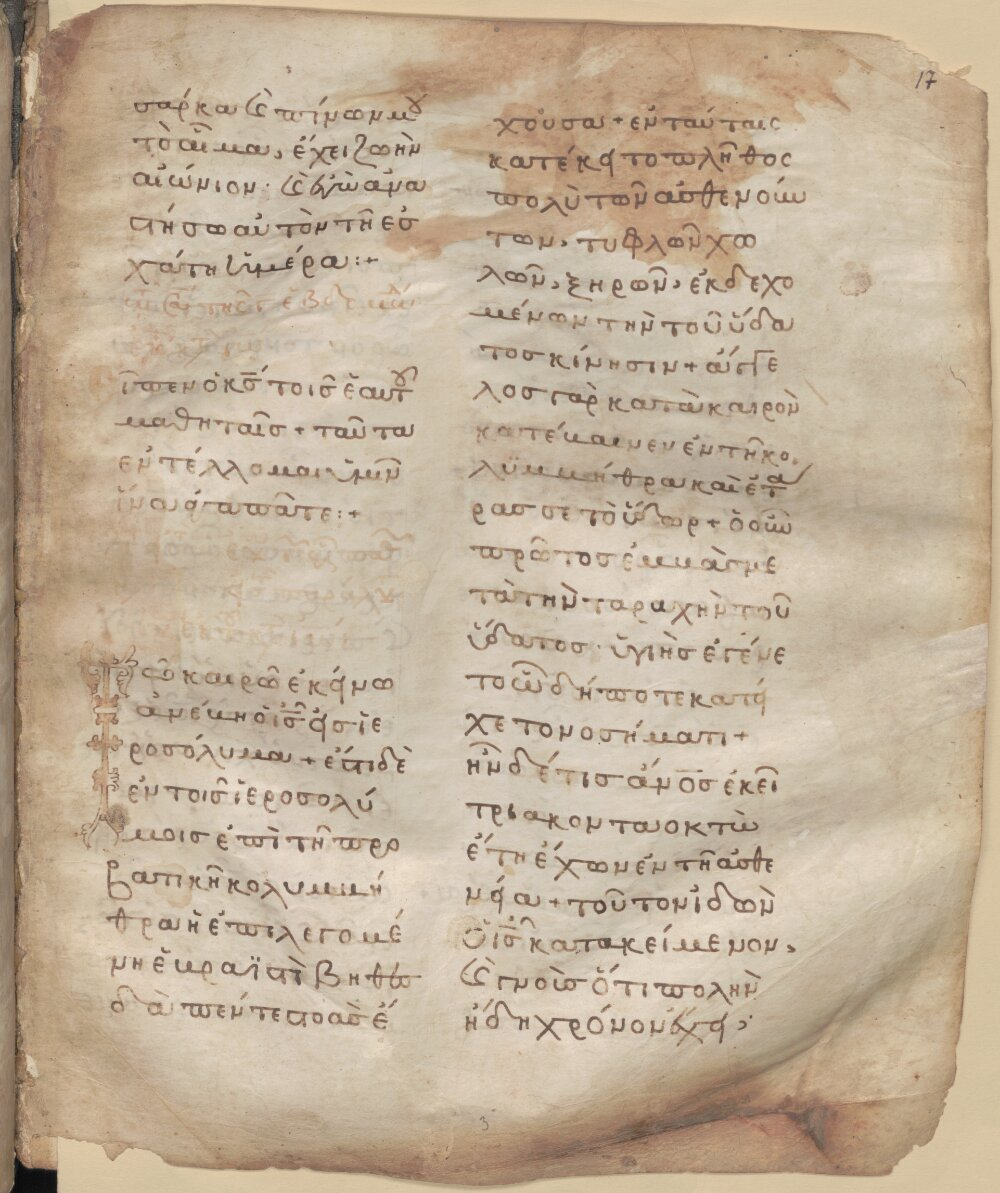 17
σάρκα καὶ πίνων μου
τὸ αἷμα, ἔχει ζωὴν
αἰώνιον· καὶ ἐγὼ ἀνα
στήσω αὐτὸν τῆ ἐσ
χάτη ἡμέρα:+
εἶπεν ὁ κ̅ς̅ τοῖς ἑαυτοῦ
μαθηταῖς + ταῦτα
ἐντέλλομαι ὑμῖν
ἵνα ἀγαπᾶτε:+
Τῶ καιρῶ ἐκείνω
ἀνέβη ὁ ι̅ς̅ εἰς ἱε
ροσόλυμα + ἔστι δὲ
ἐν τοῖς ἱεροσολύ
μοις ἐπὶ τῆ προ
βατικῆ κολυμβή
θρα ἡ ἐπιλεγομέ
νη ἑβραϊστὶ βηθεσ
δὰ πέντε στοὰς ἔ
χουσα + ἐν ταύταις
κατέκειτο πλῆθος
πολὺ τῶν ἀσθενούν
των, τυφλῶν χω
λῶν, ξηρῶν, ἐκδεχο
μένων τὴν τοῦ ὕδα
τος κίνησιν + ἄγγε
λος γὰρ κατὰ καιρὸν
κατέβαινεν ἐν τῆ κο
λυμβήθρα καὶ ἐτά
ρασσε τὸ ὕδωρ + ὁ οὖν
πρῶτος ἐμβὰς με
τὰ τὴν ταραχὴν τοῦ
ὕδατος· ὑγιὴς ἐγένε
το ὧ δήποτε κατεί
χετο νοσήματι +
ἦν δέ τις ἄν̅ο̅ς̅ ἐκεῖ
τριακονταοκτὼ
ἔτη ἔχων ἐν τῆ ἀσθε
νεία + τοῦτον ἰδὼν
ὁ ι̅ς̅ κατακείμενον,
καὶ γνοὺς ὅτι πολὺν
ἤδη χρόνον ἔχει,
3